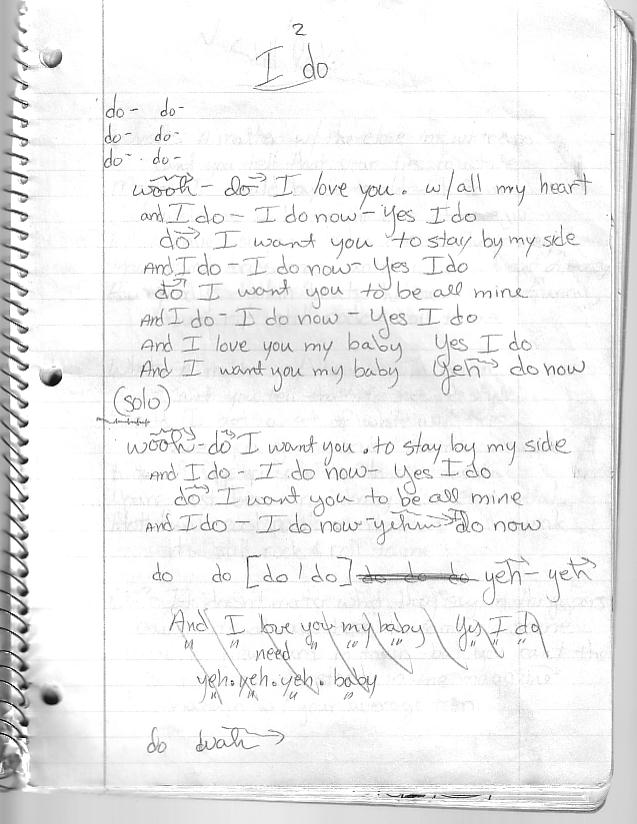 2
I do
do- do-
do- do-
do- do-
wooh - do → I love you. w/all my heart
and I do - I do now - Yes I do
do → I want you to stay by my side
And I do - I do now - Yes I do
do → I want you to be all mine
And I do - I do now - Yes I do
And I love you my baby Yes I do
And I want you my baby Yeh → do now
(solo)
wooh - do → I want you. to stay by my side
And I do - I do now - Yes I do
do → I want you to be all mine
And I do - I do now - → do now
do do [do / do] do do do yeh → - yeh →
And I love you my baby Yes I do
" " " " " " " "
need
yeh. yeh. yeh. baby
" " " "
do wah →